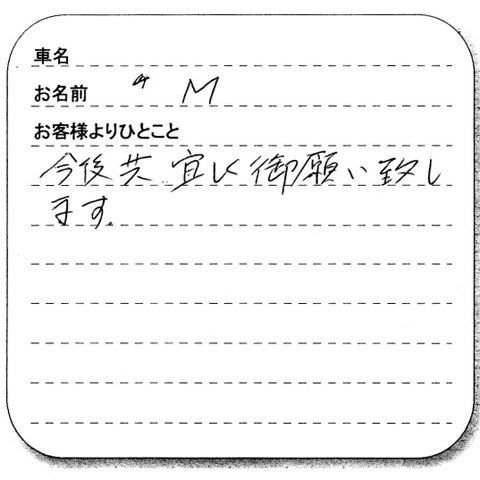 車名
お名前 M
お客様よりひとこと
今後共 宜しく御願い致し
ます。